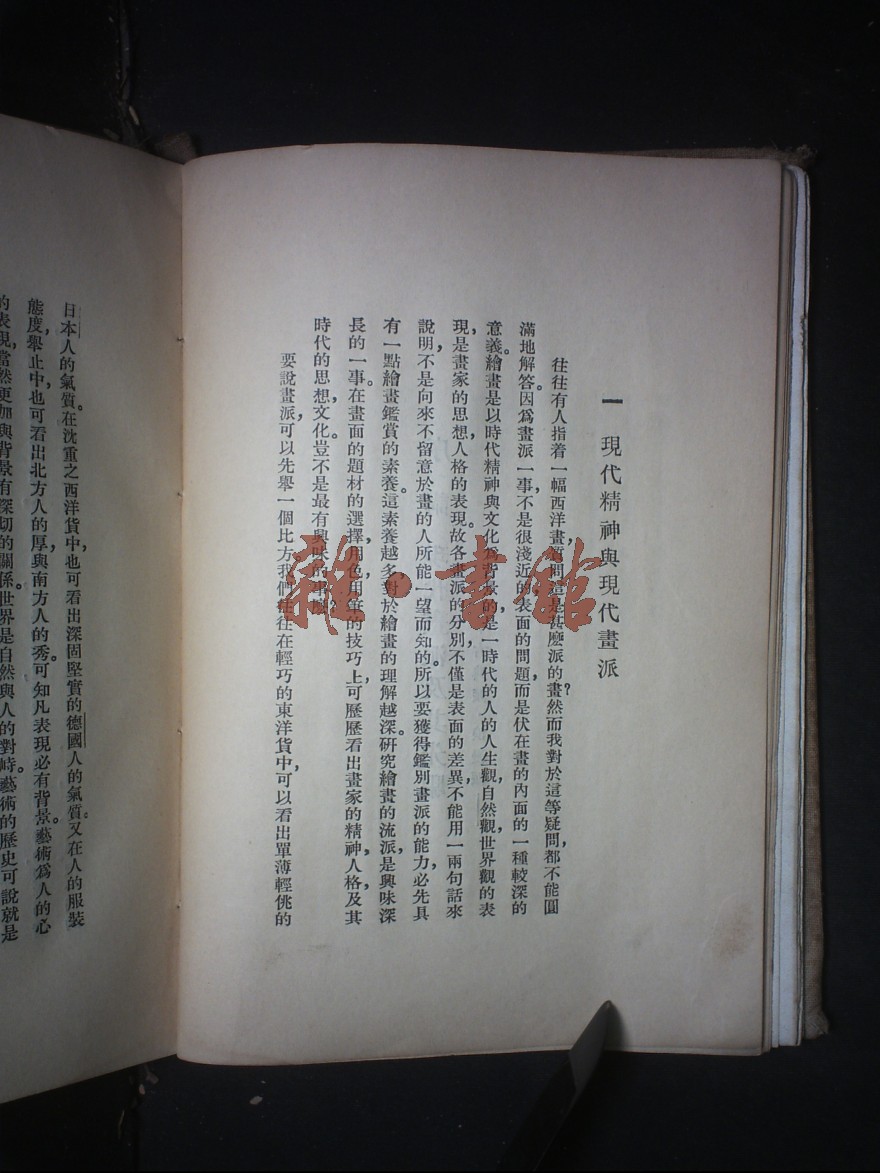 一 現代精神與現代畫派
往往有人指着一幅西洋畫質問這是甚麽派的畫？然而我對於這等疑問，都不能圓
滿地解答。因爲畫派一事，不是很淺近的表面的問題，而是伏在畫的內面的一種較深的
意義。繪畫是以時代精神與文化爲背景的，是一時代的人的人生觀，自然觀，世界觀的表
現，是畫家的思想人格的表現。故各畫派的分別，不僅是表面的差異，不能用一兩句話來
說明，不是向來不留意於畫的人所能一望而知的。所以要獲得鑑別畫派的能力，必先具
有一點繪畫鑑賞的素養。這素養越多，對於繪畫的理解越深。硏究繪畫的流派，是興味深
長的一事。在畫面的題材的選擇，用色，用筆的技巧上，可歷歷看出畫家的精神，人格，及其
時代的思想，文化，豈不是最有興味的事
要說畫派，可以先舉一個比方。我們往往在輕巧的東洋貨中，可以看出單薄輕佻的
日本人的氣質。在沈重之西洋貨中，也可看出深固堅實的德國人的氣質。又在人的服裝
態度舉止中，也可看出北方人的厚，與南方人的秀。可知凡表現必有背景。藝術爲人的心
的表現，當然更加與背景有深切的關係。世界是自然與人的對峙。藝術的歷史，可說就是
雜·書館